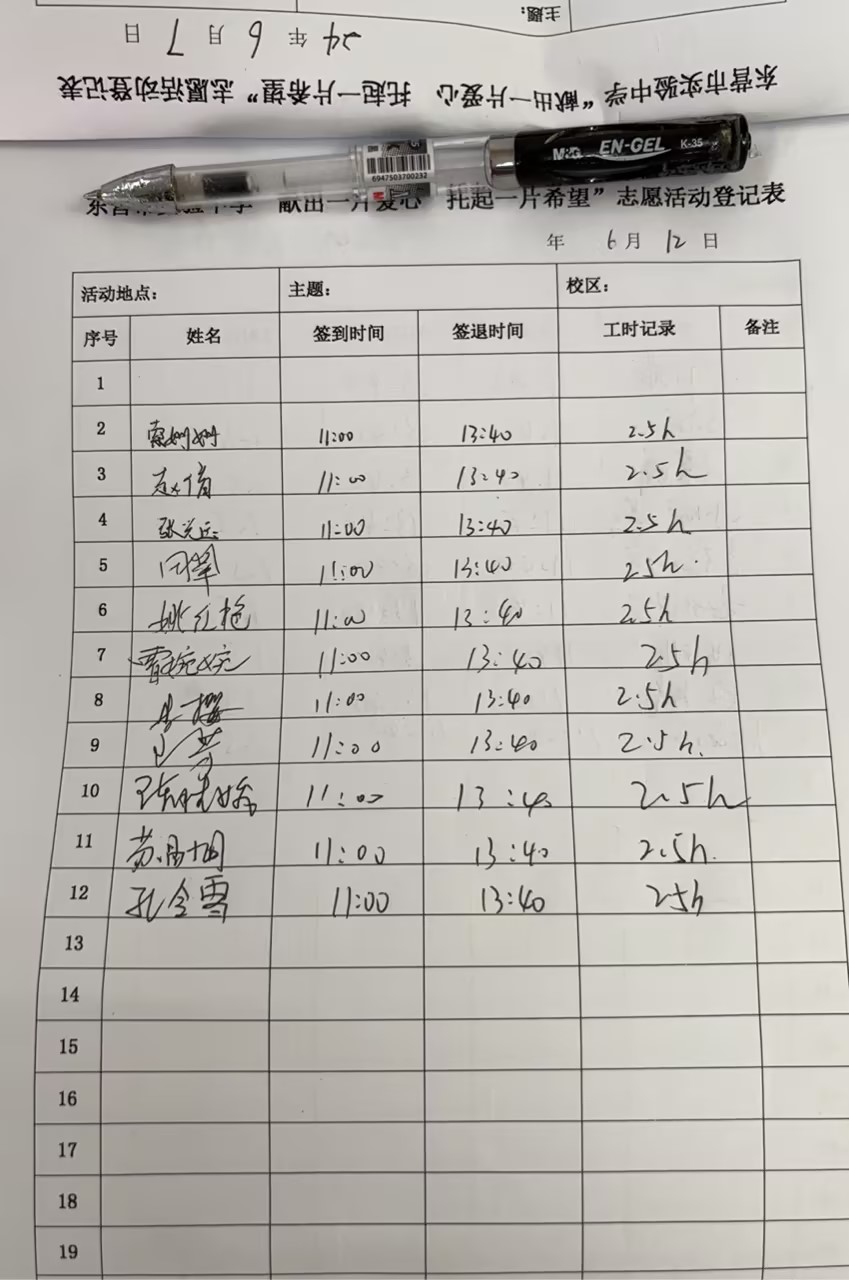 主题:
24 年 6 月 7 日
东营市实验中学“献出一片爱心 托起一片希望”志愿活动登记表
M&G EN-GEL K-35
6947503700232
东营市实验中学“献出一片爱心 托起一片希望”志愿活动登记表
年 6月 12 日
活动地点: 主题: 校区:
序号 姓名 签到时间 签退时间 工时记录 备注
1
2 11:00 13:40 2.5h
3 赵倩 11:00 13:40 2.5h
4 11:00 13:40 2.5h
5 11:00 13:40 2.5h
6 姚红艳 11:00 13:40 2.5h
7 11:00 13:40 2.5h
8 11:00 13:40 2.5h
9 11:00 13:40 2.5h.
10 11:00 13:40 2.5h
11 11:00 13:40 2.5h.
12 孔令雪 11:00 13:40 2.5h
13
14
15
16
17
18
19